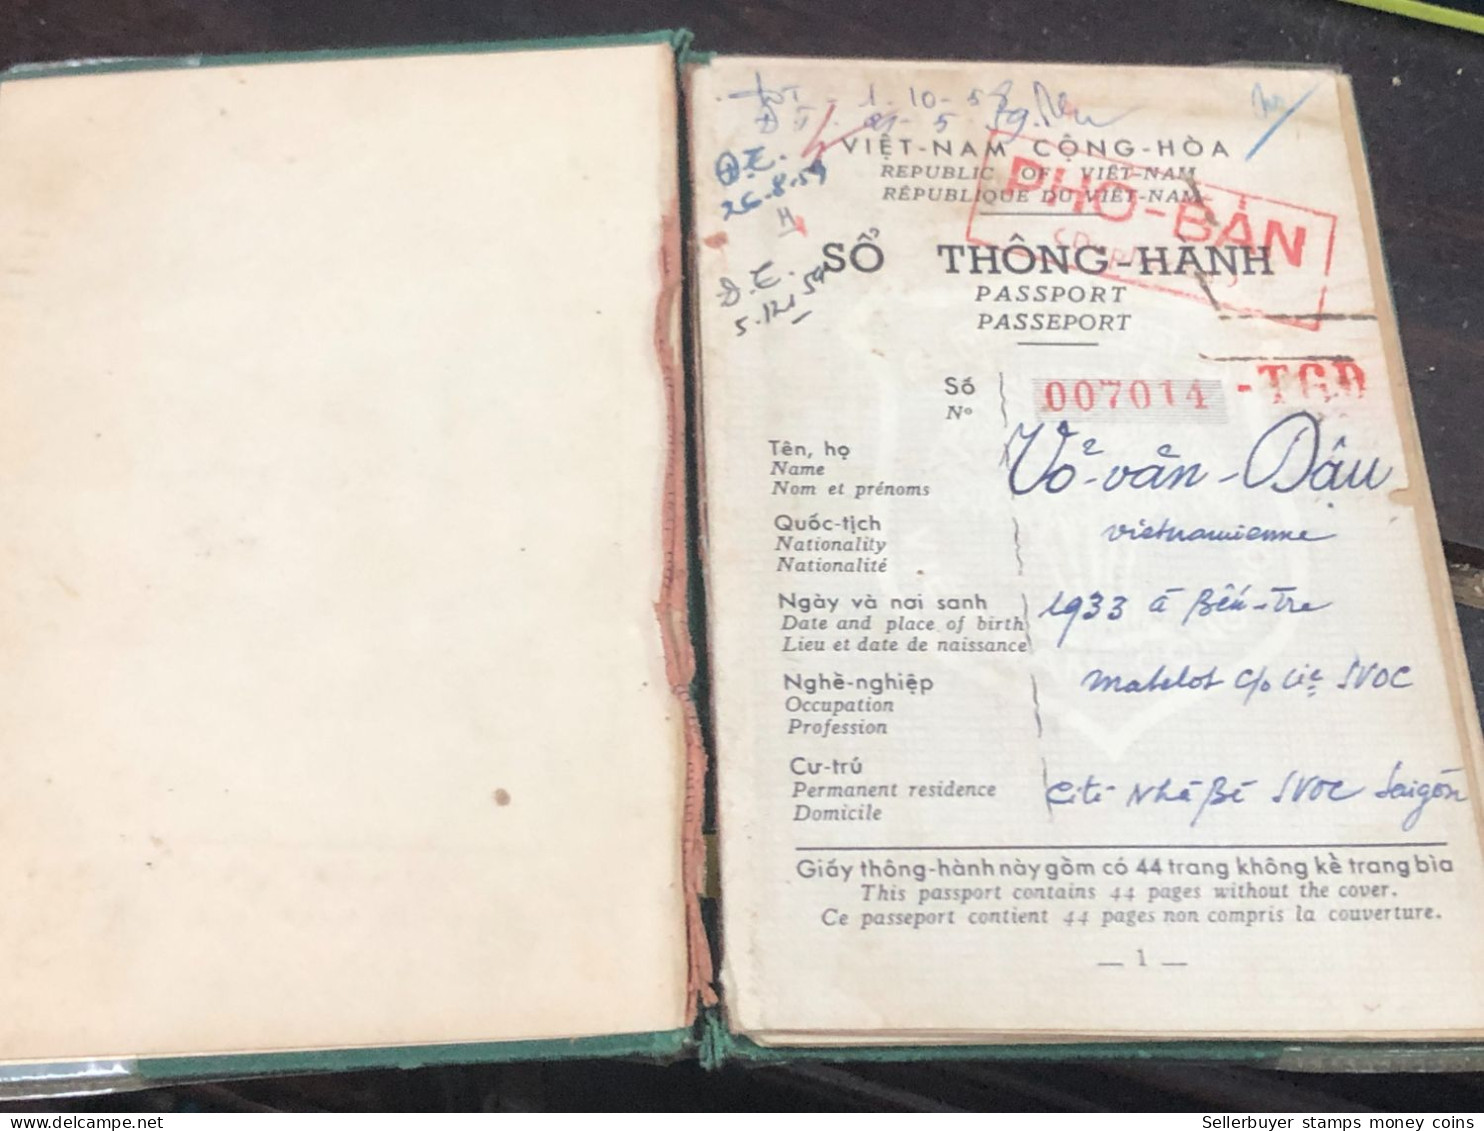 1.10-58
VIỆT-NAM CỘNG-HÒA
REPUBLIC OF VIÊT-NAM
RÉPUBLIQUE DU VIÊT-NAM
PHÓ-BẢN
Đ.E.
26.8.59
H
Đ.E.
5.12.59
SỔ THÔNG-HÀNH
PASSPORT
PASSEPORT
Số
Nº
007014 -TGĐ
Tên, họ
Name
Nom et prénoms
Võ-văn-Dâu
Quốc-tịch
Nationality
Nationalité
vietnamienne
Ngày và nơi sanh
Date and place of birth
Lieu et date de naissance
1933 à Bến-tre
Nghề-nghiệp
Occupation
Profession
matelot c/o Cie SVOC
Cư-trú
Permanent residence
Domicile
Cité Nhà Bè SVOC Saigòn
Giấy thông-hành này gồm có 44 trang không kể trang bìa
This passport contains 44 pages without the cover.
Ce passeport contient 44 pages non compris la couverture.
— 1 —
Sellerbuyer stamps money coins